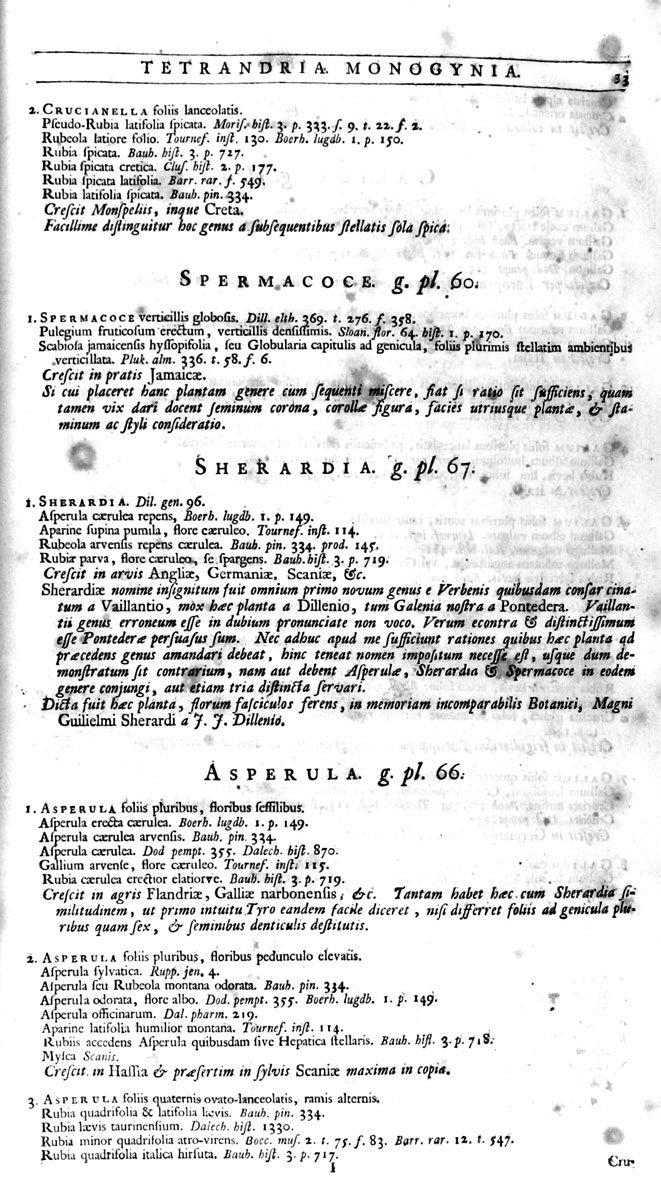 TETRANDRIA MONOGYNIA.
33
2. CRUCIANELLA foliis lanceolatis.
Pſeudo-Rubia latifolia ſpicata. Moriſ. hiſt. 3. p. 333. ſ. 9. t. 22. f. 2.
Rubeola latiore folio. Tournef. inſt. 130. Boerh. lugdb. 1. p. 150.
Rubia ſpicata. Bauh. hiſt. 3. p. 727.
Rubia ſpicata cretica. Cluſ. hiſt. 2. p. 177.
Rubia ſpicata latifolia. Barr. rar. f. 549.
Rubia latifolia ſpicata. Bauh. pin. 334.
Creſcit Monſpeliis, inque Creta.
Facillime diſtinguitur hoc genus a ſubſequentibus ſtellatis ſola ſpica.
SPERMACOCE. g. pl. 60.
1. SPERMACOCE verticillis globoſis. Dill. elth. 369. t. 276. f. 358.
Pulegium fruticoſum erectum, verticillis denſiſſimis. Sloan. flor. 64. hiſt. 1. p. 170.
Scabioſa jamaicenſis hyſſopifolia, ſeu Globularia capitulis ad genicula, foliis plurimis ſtellatim ambientibus
verticillata. Pluk. alm. 336. t. 58. f. 6.
Creſcit in pratis Jamaicæ.
Si cui placeret hanc plantam genere cum ſequenti miſcere, fiat ſi ratio ſit ſufficiens, quam
tamen vix dari docent ſeminum corona, corollæ figura, facies utriusque plantæ, & ſta-
minum ac ſtyli conſideratio.
SHERARDIA. g. pl. 67.
1. SHERARDIA. Dil. gen. 96.
Aſperula cærulea repens, Boerh. lugdb. 1. p. 149.
Aparine ſupina pumila, flore cæruleo. Tournef. inſt. 114.
Rubeola arvenſis repens cærulea. Bauh. pin. 334. prod. 145.
Rubia parva, flore cæruleo, ſe ſpargens. Bauh. hiſt. 3. p. 719.
Creſcit in arvis Angliæ, Germaniæ, Scaniæ, &c.
Sherardiæ nomine inſignitum fuit omnium primo novum genus e Verbenis quibusdam conſarcina-
tum a Vaillantio, mox hæc planta a Dillenio, tum Galenia noſtra a Pontedera. Vaillan-
tii genus erroneum eſſe in dubium pronunciate non voco. Verum econtra & diſtinctiſſimum
eſſe Pontederæ perſuaſus ſum. Nec adhuc apud me ſufficiunt rationes quibus hæc planta ad
præcedens genus amandari debeat, hinc teneat nomen impoſitum neceſſe eſt, uſque dum de-
monſtratum ſit contrarium, nam aut debent Aſperulæ, Sherardia & Spermacoce in eodem
genere conjungi, aut etiam tria diſtincta ſervari.
Dicta fuit hæc planta, florum faſciculos ferens, in memoriam incomparabilis Botanici, Magni
Guilielmi Sherardi a J. J. Dillenio.
ASPERULA. g. pl. 66.
1. ASPERULA foliis pluribus, floribus ſeſſilibus.
Aſperula erecta cærulea. Boerh. lugdb. 1. p. 149.
Aſperula cærulea arvenſis. Bauh. pin. 334.
Aſperula cærulea. Dod pempt. 355. Dalech. hiſt. 870.
Gallium arvenſe, flore cæruleo. Tournef. inſt. 115.
Rubia cærulea erectior elatiorve. Bauh. hiſt. 3. p. 719.
Creſcit in agris Flandriæ, Galliæ narbonenſis, &c. Tantam habet hæc cum Sherardia ſi-
militudinem, ut primo intuitu Tyro eandem facile diceret, niſi differret foliis ad genicula plu-
ribus quam ſex, & ſeminibus denticulis deſtitutis.
2. ASPERULA foliis pluribus, floribus pedunculo elevatis.
Aſperula ſylvatica. Rupp. jen. 4.
Aſperula ſeu Rubeola montana odorata. Bauh. pin. 334.
Aſperula odorata, flore albo. Dod. pempt. 355. Boerh. lugdb. 1. p. 149.
Aſperula officinarum. Dal. pharm. 219.
Aparine latifolia humilior montana. Tournef. inſt. 114.
Rubiis accedens Aſperula quibusdam ſive Hepatica ſtellaris. Bauh. hiſt. 3. p. 718.
Myſca Scanis.
Creſcit in Haſſia & præſertim in ſylvis Scaniæ maxima in copia.
3. ASPERULA foliis quaternis ovato-lanceolatis, ramis alternis.
Rubia quadrifolia & latifolia lævis. Bauh. pin. 334.
Rubia lævis taurinenſium. Dalech. hiſt. 1330.
Rubia minor quadrifolia atro-virens. Bocc. muſ. 2. t. 75. f. 83. Barr. rar. 12. t. 547.
Rubia quadrifolia italica hirſuta. Bauh. hiſt. 3. p. 717.
I
Cru-